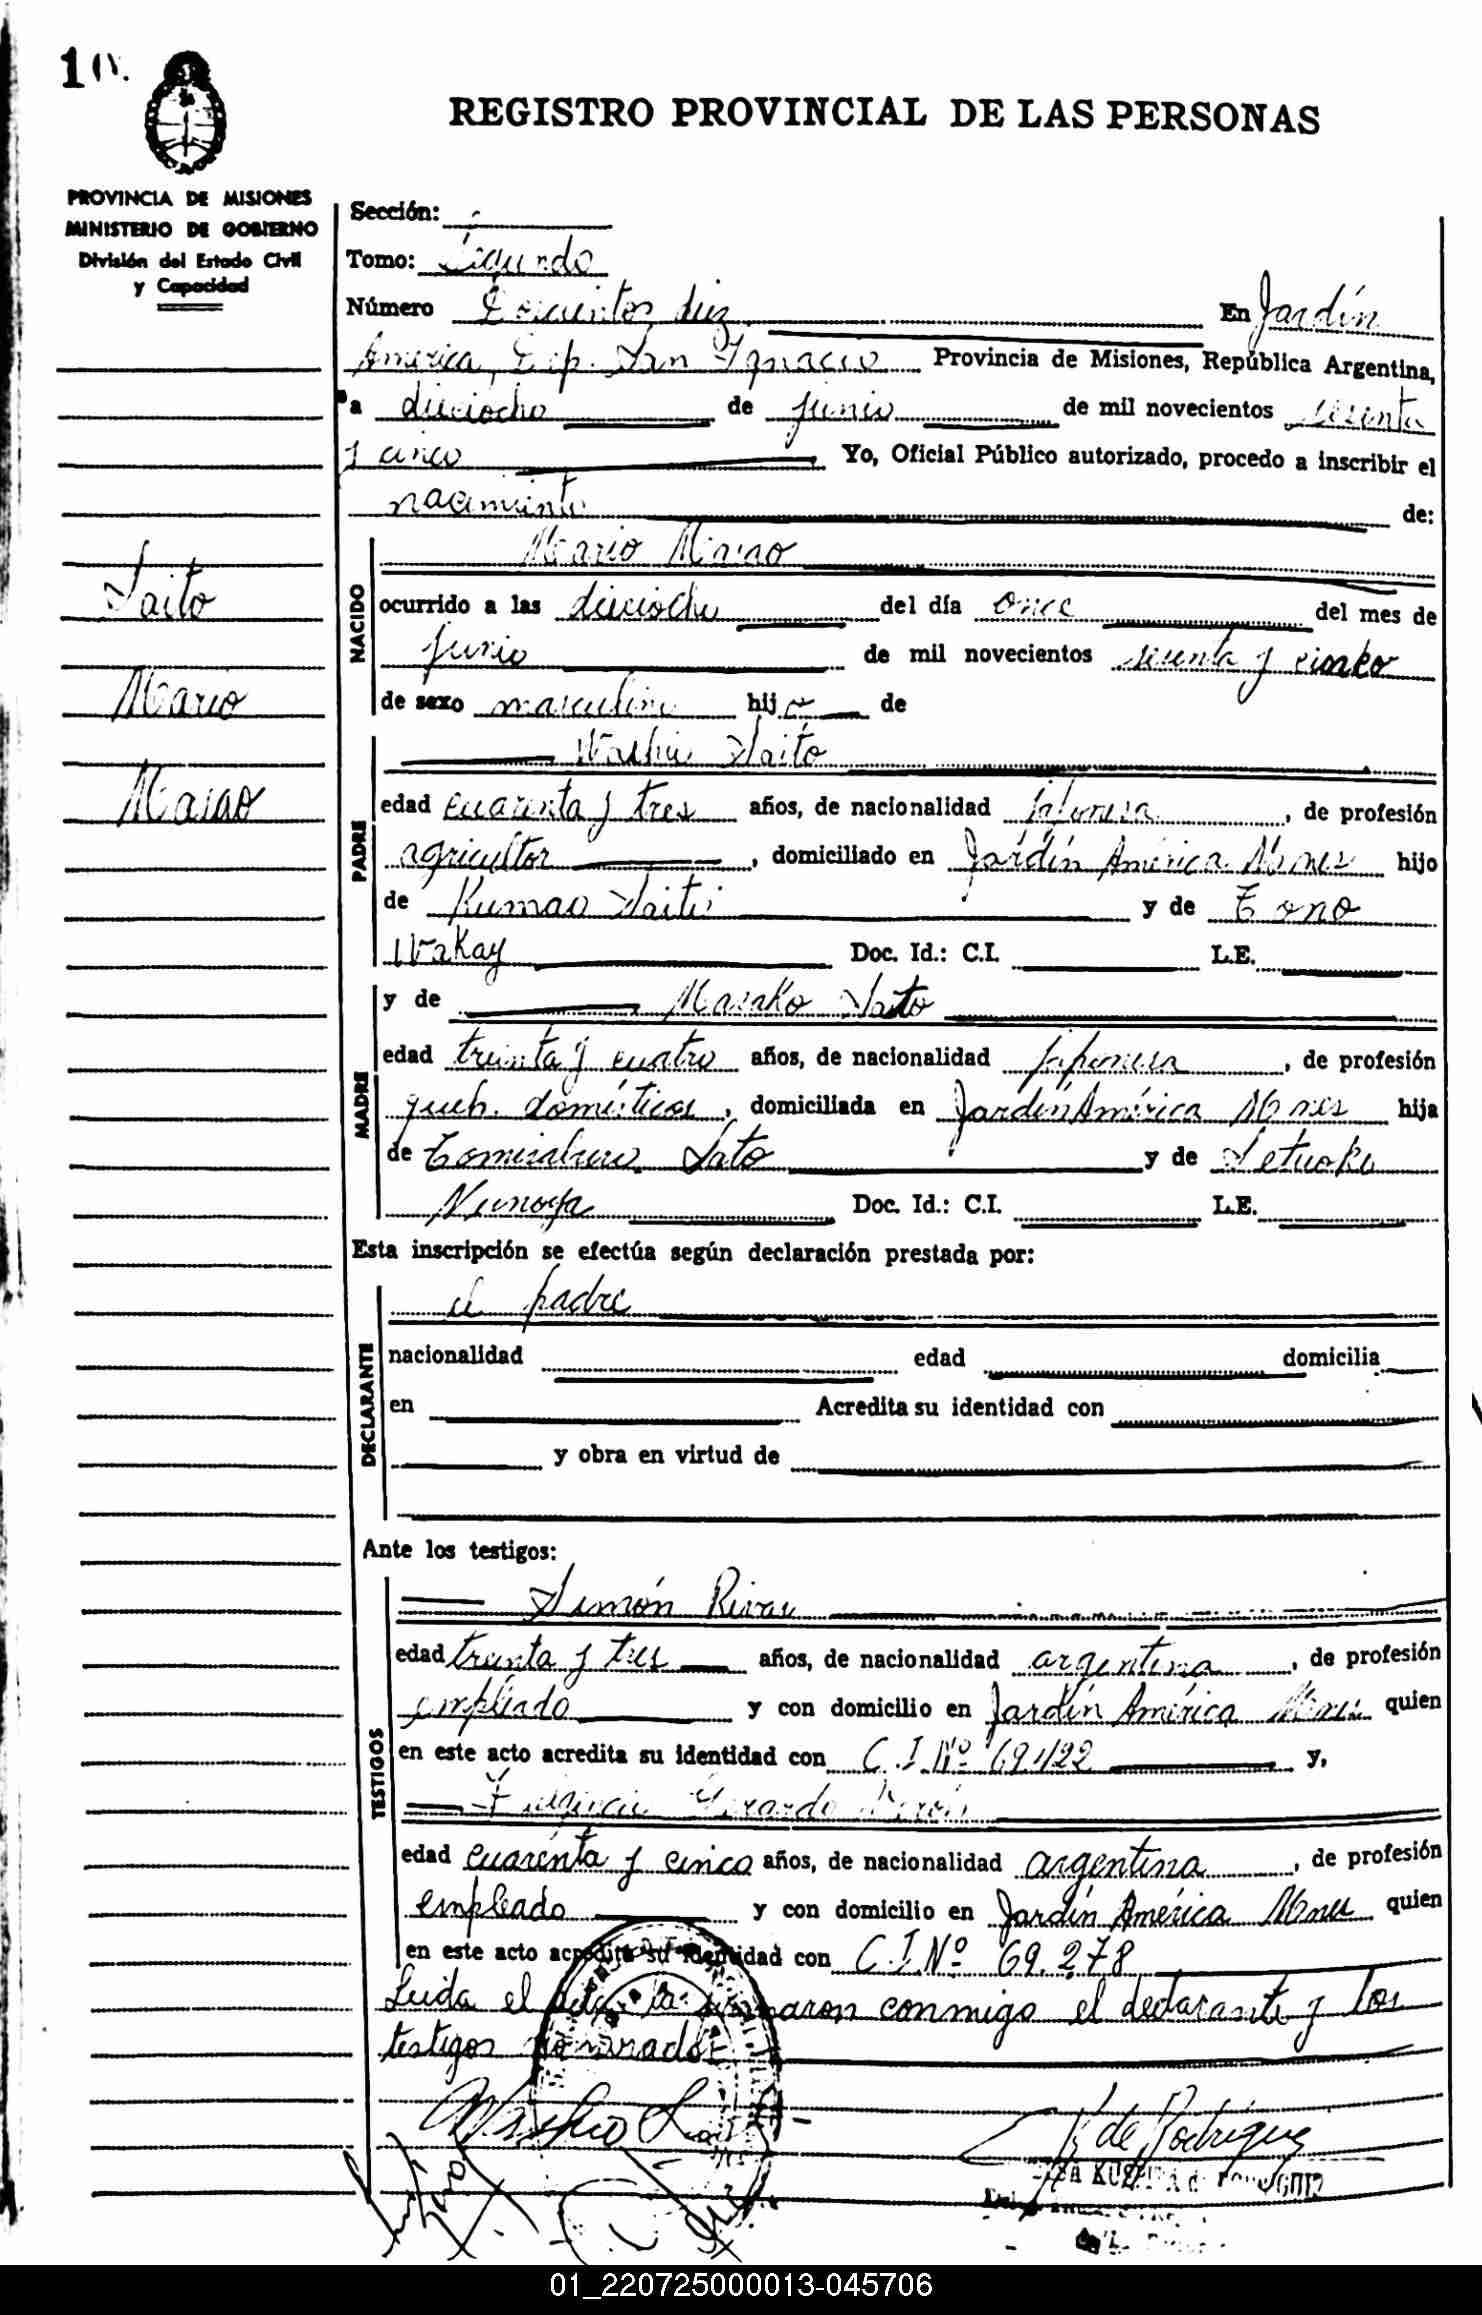 REGISTRO PROVINCIAL DE LAS PERSONAS
PROVINCIA DE MISIONES
MINISTERIO DE GOBIERNO
División del Estado Civil
y Capacidad
Sección:
Tomo: Segundo
Número Doscientos diez En Jardín
América, Dep. San Ignacio Provincia de Misiones, República Argentina,
a dieciocho de junio de mil novecientos sesenta
y cinco Yo, Oficial Público autorizado, procedo a inscribir el
nacimiento de:
Saito
Mario
Masao
NACIDO
Mario Masao
ocurrido a las dieciocho del día once del mes de
junio de mil novecientos sesenta y cinco
de sexo masculino hijo de
PADRE
Washio Saito
edad cuarenta y tres años, de nacionalidad japonesa, de profesión
agricultor, domiciliado en Jardín América Mnes hijo
de Kumao Saito y de Tono
Wakay Doc. Id.: C.I. L.E.
MADRE
y de Masako Sato
edad treinta y cuatro años, de nacionalidad japonesa, de profesión
queh. domésticos, domiciliada en Jardín América Mnes hija
de Tomisaburo Sato y de
Nunoya Doc. Id.: C.I. L.E.
Esta inscripción se efectúa según declaración prestada por:
DECLARANTE
el padre
nacionalidad edad domicilia
en Acredita su identidad con
y obra en virtud de
Ante los testigos:
TESTIGOS
Simón Rivas
edad treinta y tres años, de nacionalidad argentina, de profesión
empleado y con domicilio en Jardín América Mnes quien
en este acto acredita su identidad con C.I. Nº y,
Gerardo
edad cuarenta y cinco años, de nacionalidad argentina, de profesión
empleado y con domicilio en Jardín América Mnes quien
en este acto acredita su identidad con C.I. Nº 69.278
Leida el acta la firmaron conmigo el declarante y los
testigos nominados
Washio Saito
K de Rodriguez
01_220725000013-045706